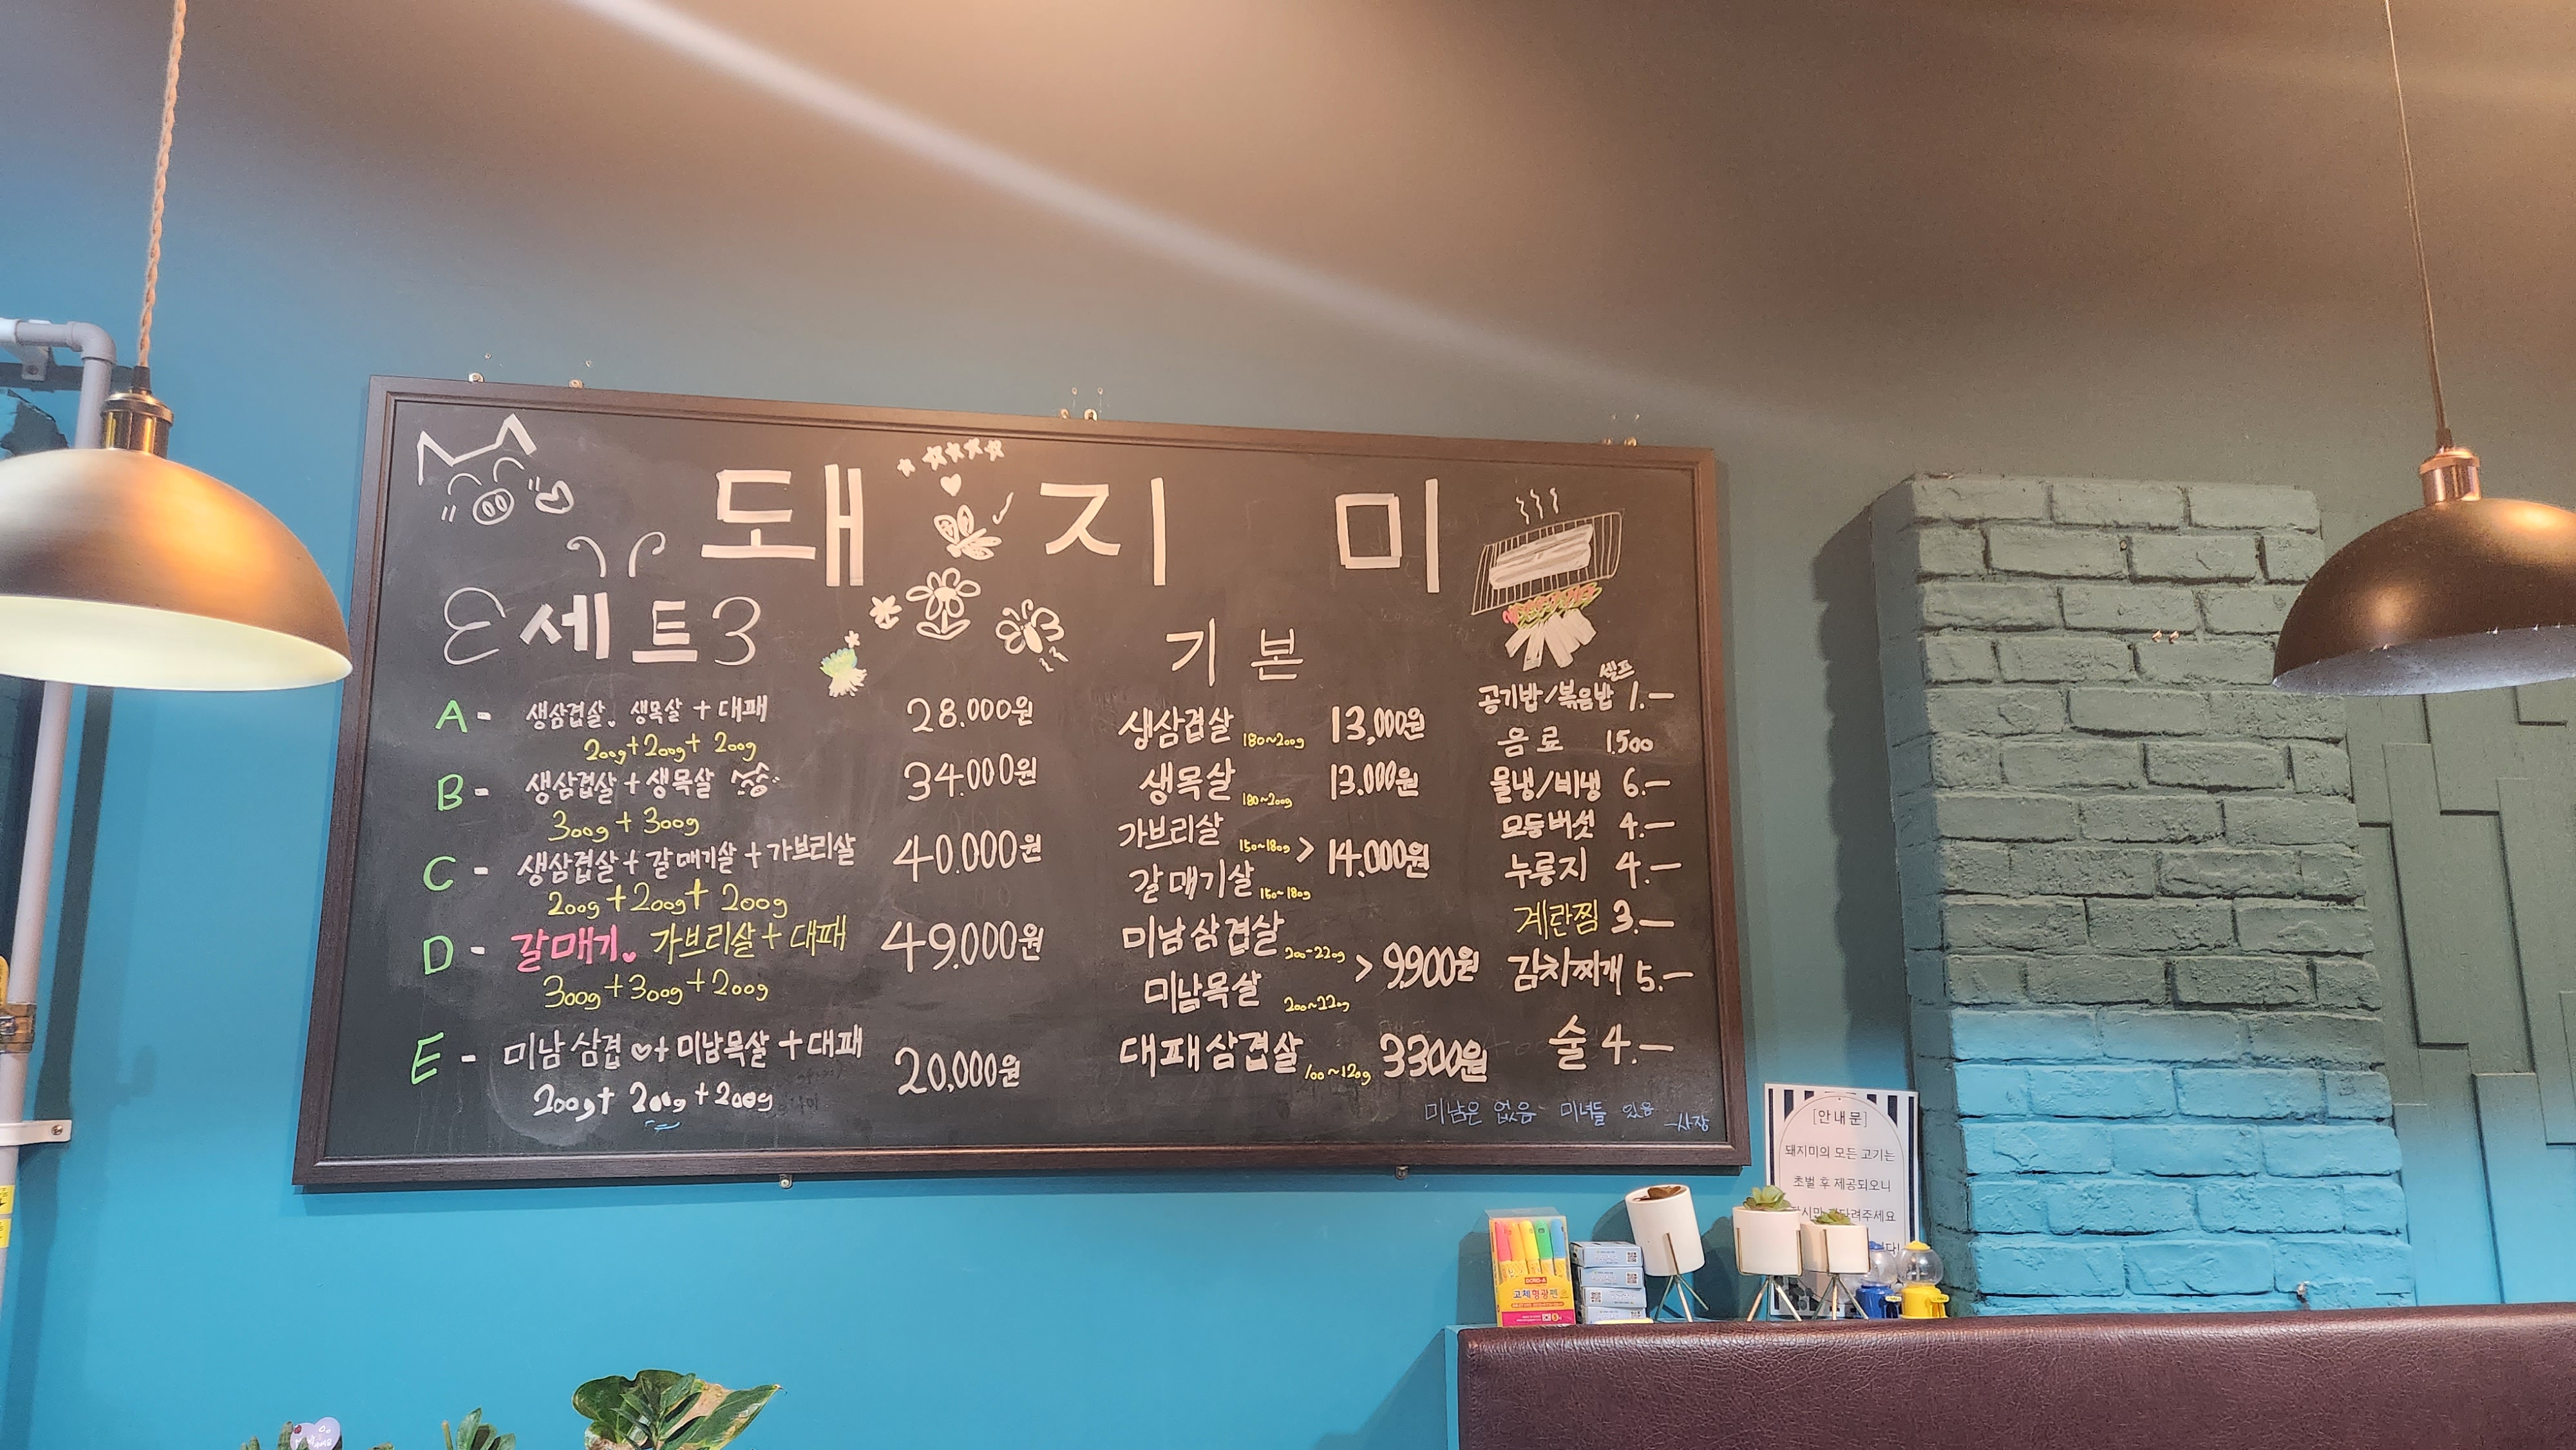 돼지미
세트
A - 생삼겹살. 생목살 + 대패 28.000원
200g + 200g + 200g
B - 생삼겹살 + 생목살 34.000원
300g + 300g
C - 생삼겹살 + 갈매기살 + 가브리살 40.000원
200g + 200g + 200g
D - 갈매기. 가브리살 + 대패 49.000원
300g + 300g + 200g
E - 미남삼겹 ♡ + 미남목살 + 대패 20,000원
200g + 200g + 200g
기본
생삼겹살 180~200g 13,000원
생목살 180~200g 13.000원
가브리살 150~180g
갈매기살 150~180g > 14.000원
미남삼겹살 200~220g
미남목살 200~220g > 9.900원
대패삼겹살 100~120g 3300원
셀프
공기밥/볶음밥 1.-
음료 1.500
물냉/비냉 6.-
모둠버섯 4.-
누룽지 4.-
계란찜 3.-
김치찌개 5.-
술 4.-
미남은 없음 미녀들 있음 -사장
[안내문]
돼지미의 모든 고기는
초벌 후 제공되오니
고체형광펜